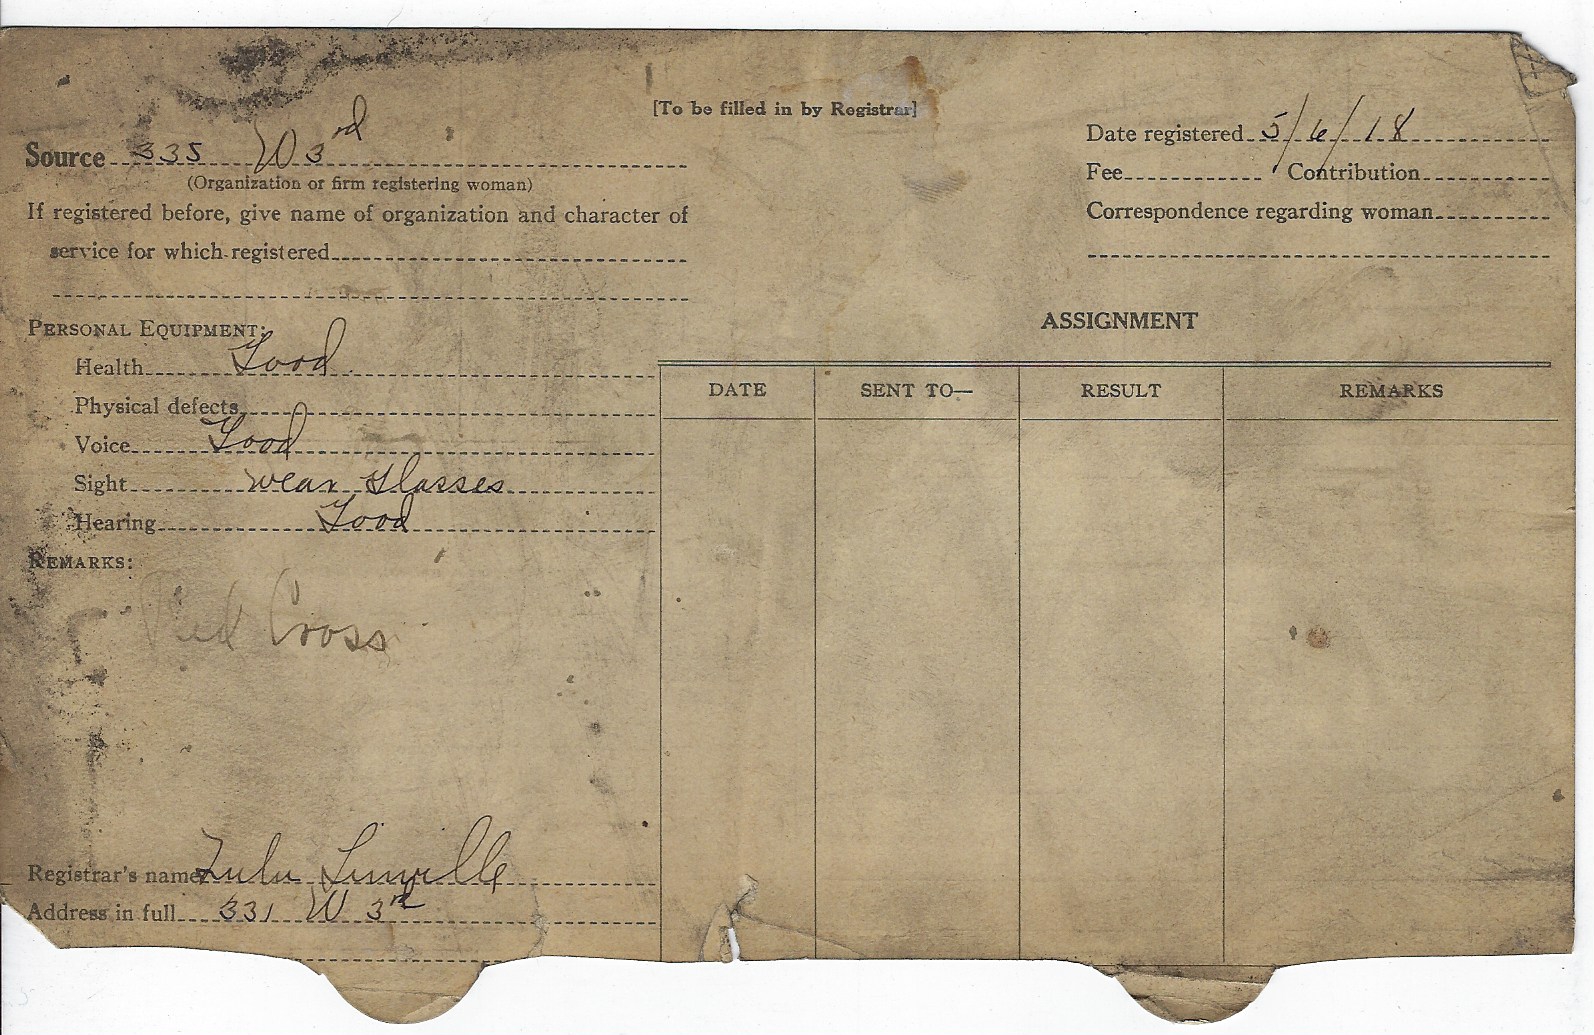 [To be filled in by Registrar]
Source 335 W 3rd
(Organization or firm registering woman)
If registered before, give name of organization and character of
service for which registered
Date registered 5/6/18
Fee Contribution
Correspondence regarding woman
PERSONAL EQUIPMENT:
Health Good
Physical defects
Voice Good
Sight wear glasses
Hearing Good
REMARKS:
Red Cross
Registrar's name Lulu Linville
Address in full 331 W 3rd
ASSIGNMENT
DATE SENT TO— RESULT REMARKS